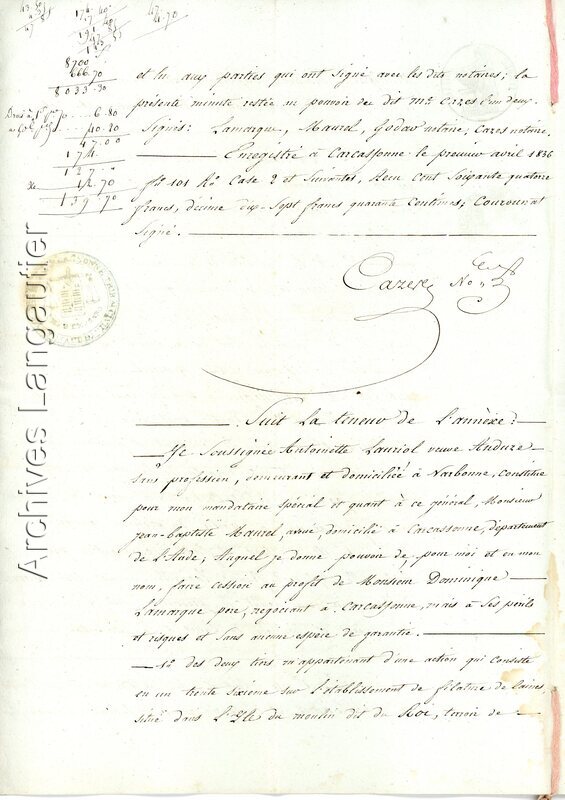 8700
666.70
6.80
40.20
47.00
174
127
12.70
139.70
et lu aux parties qui ont signé avec les dits notaires; la
présente minute restée au pouvoir du dit Me Cazes l'un deux.
Signés: Lamarque, Maurel, Godav notaire, Cazes notaire.
Enregistré à Carcassonne le premier avril 1836
fo 101 Ro Case 2 et Suivantes, Reçu Cent Soixante quatorze
francs, décime dix-Sept francs quarante Centimes; Couronnat
Signé.
Cazes No re
Suit la teneur de l'annexe:
Je Soussignée Antoinette Lauriol veuve Anduze
sans profession, demeurant et domiciliée à Narbonne, constitue
pour mon mandataire Spécial et quant à ce général, Monsieur
Jean-baptiste Maurel, avoué, domicilié à Carcassonne, département
de l'Aude; Auquel je donne pouvoir de, pour moi et en mon
nom, faire cession au profit de Monsieur Dominique
Lamarque pere, négociant à Carcassonne, mais à Ses périls
et risques et Sans aucune espèce de garantie.
1o des deux tiers m'appartenant d'une action qui consiste
en un trente sixième sur l'établissement de filature de laines
situé dans l'Ile du moulin dit du Roi, terroir de
Archives Langautier